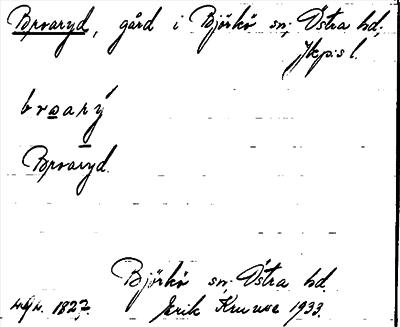 Broaryd, gård i Björkö sn; Östra hd,
Jkp:s l.
broarý
Broaryd.
Björkö sn Östra hd.
1827. Erik Kruuse 1933.